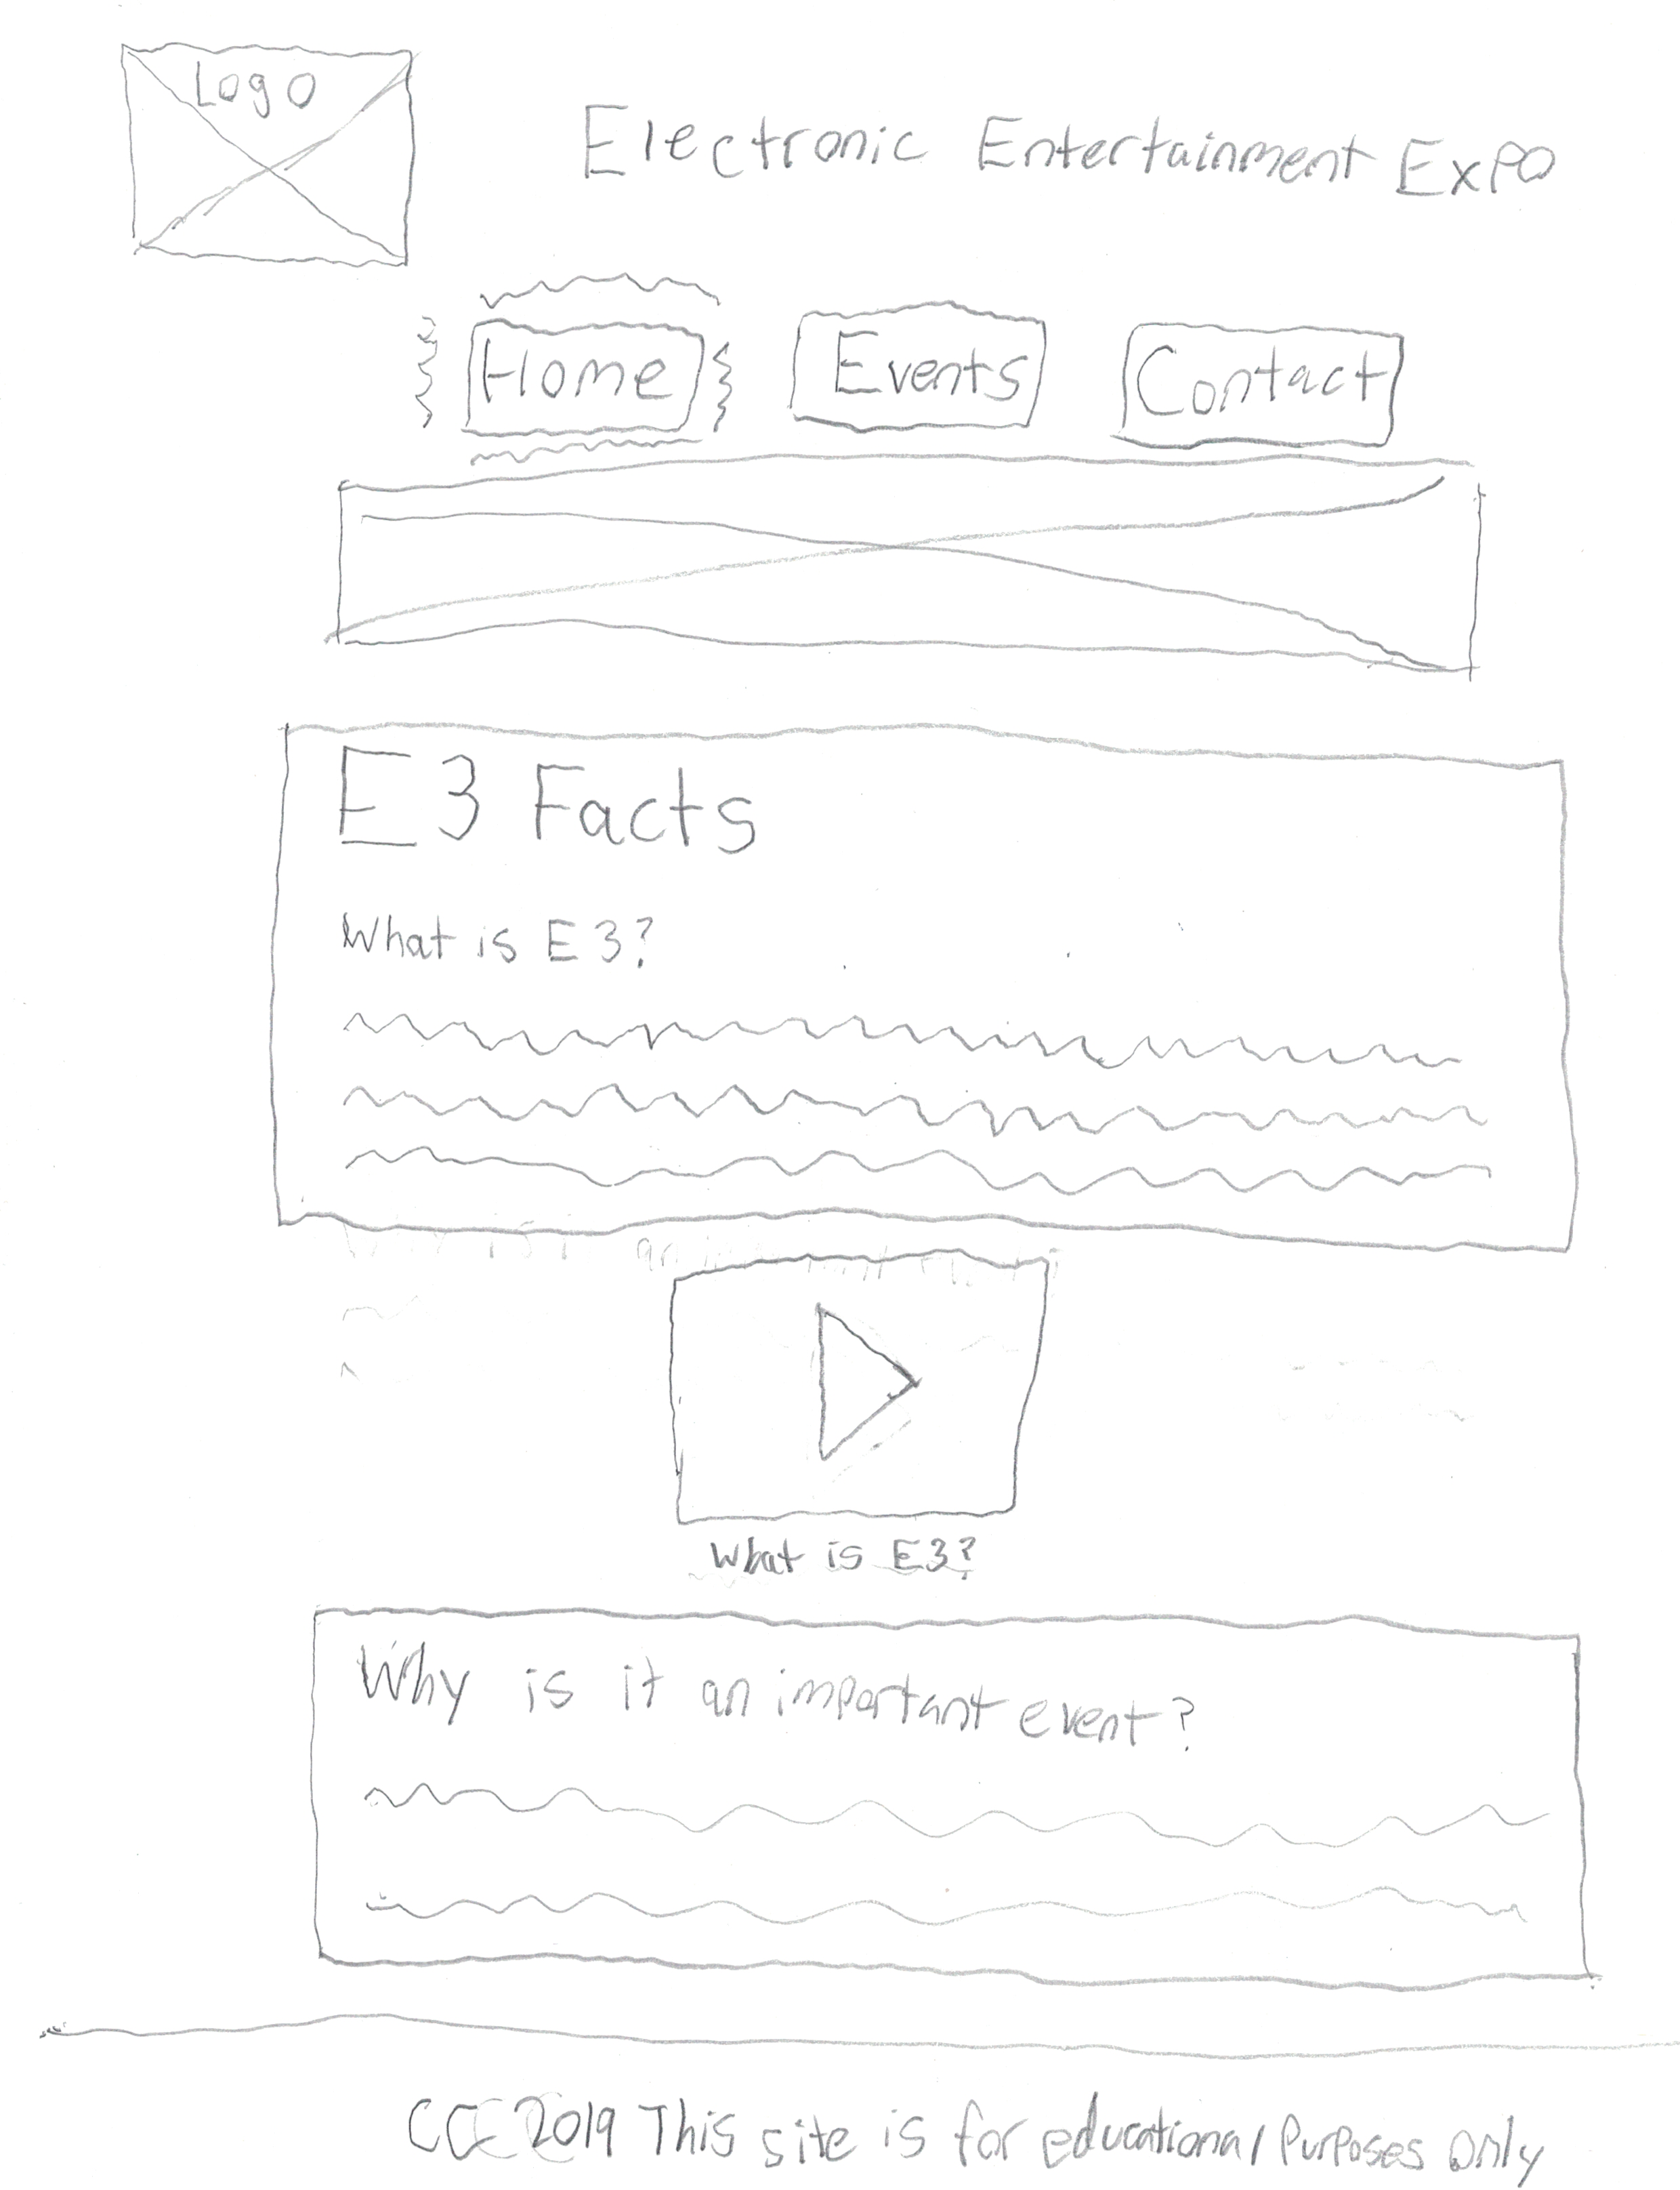 Logo
Electronic Entertainment Expo
Home Events Contact
E3 Facts
What is E3?
What is E3?
Why is it an important event?
CC 2019 This site is for educational Purposes Only